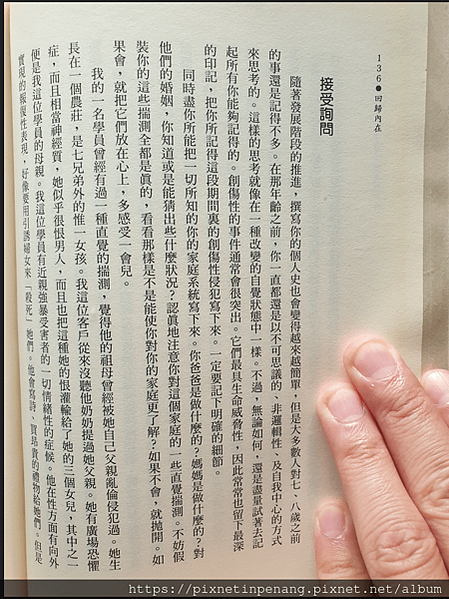 136●回歸內在
接受詢問
隨著發展階段的推進，撰寫你的個人史也會變得越來越簡單，但是大多數人對七、八歲之前
的事還是記得不多。在那年齡之前，你一直都還是以不可思議的、非邏輯性、及自我中心的方式
來思考的。這樣的思考就像在一種改變的自覺狀態中一樣。不過，無論如何，還是盡量試著去記
起所有你能夠記得的。創傷性的事件通常會很突出。它們最具生命威脅性，因此常常也留下最深
的印記，把你所記得這段期間裏的創傷性侵犯寫下來。一定要記下明確的細節。
同時盡你所能把一切所知的你的家庭系統寫下來。你爸爸是做什麼的？媽媽是做什麼的？對
他們的婚姻，你知道或是能猜出些什麼狀況？認真地注意你對這個家庭的一些直覺揣測。不妨假
裝你的這些揣測全都是真的，看看那樣是不是能使你對你的家庭更了解？如果不會，就拋開。如
果會，就把它們放在心上，多感受一會兒。
我的一名學員曾經有過一種直覺的揣測，覺得他的祖母曾經被她自己父親亂倫侵犯過。她生
長在一個農莊，是七兄弟外的惟一女孩。我這位客戶從來沒聽他奶奶提過她父親。她有廣場恐懼
症，而且相當神經質，她似乎很恨男人，而且也把這種她的恨灌輸給了她的三個女兒，其中之一
便是我這位學員的母親。我這位學員有近親強暴受害者的一切情緒性的症候。他在性方面有向外
實現的報復性表現，好像要用引誘婦女來「殺死」她們。他會寫詩、買昂貴的禮物給她們。但是
https://pixnetinpenang.pixnet.net/album